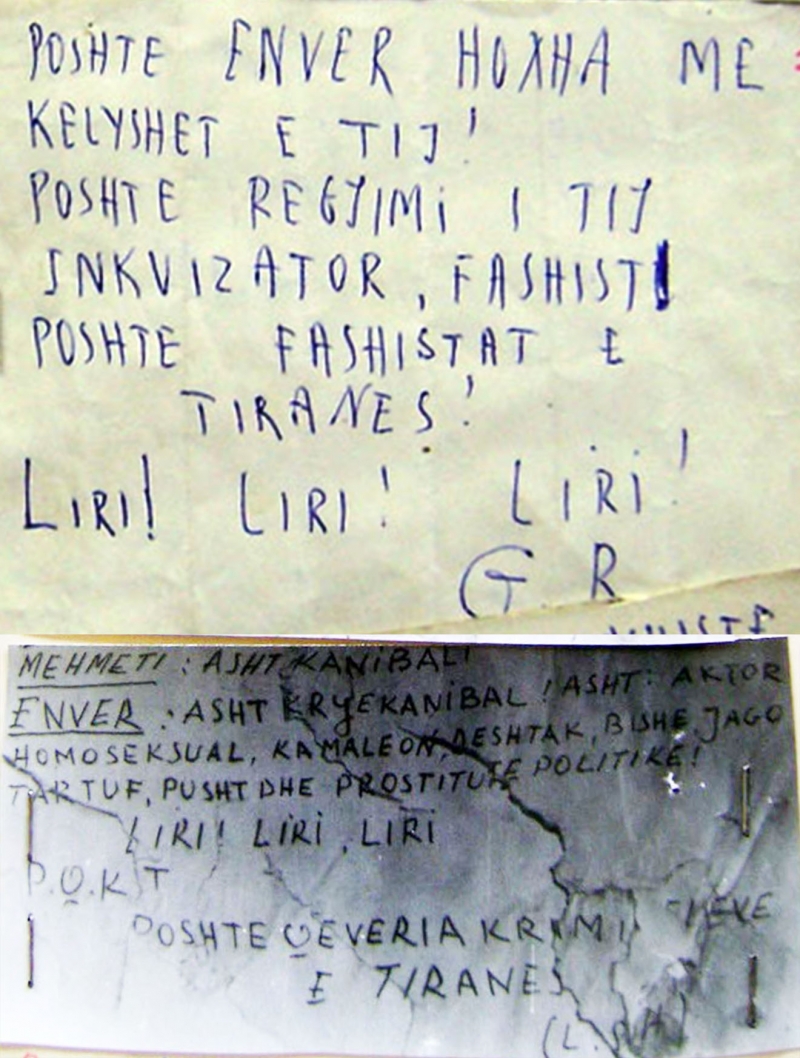 POSHTE ENVER HOXHA ME
KELYSHET E TIJ!
POSHTE REGJIMI I TIJ
INKVIZATOR, FASHIST
POSHTE FASHISTAT E
TIRANES!
LIRI! LIRI! LIRI!
G R
MEHMETI: ASHT KANIBAL!
ENVER: ASHT KRYEKANIBAL! ASHT: AKTOR
HOMOSEKSUAL, KAMALEON, DESHTAK, BISHE, JAGO
TARTUF, PUSHT DHE PROSTITUTE POLITIKE!
LIRI! LIRI, LIRI
P.O.K T
POSHTE QEVERIA
E TIRANES
(L.SH)